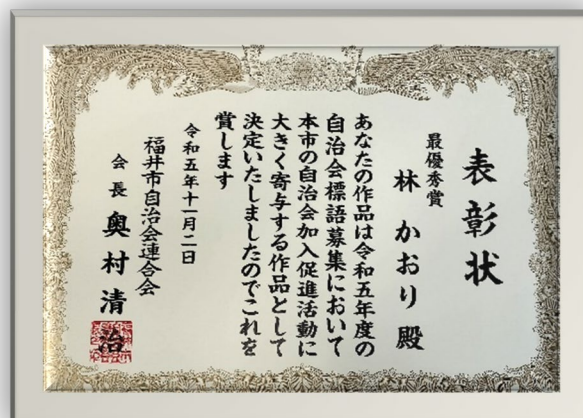 表彰状
最優秀賞
林 かおり 殿
あなたの作品は令和五年度の
自治会標語募集において
本市の自治会加入促進活動に
大きく寄与する作品として
決定いたしましたのでこれを
賞します
令和五年十一月二日
福井市自治会連合会
会長 奥村清治